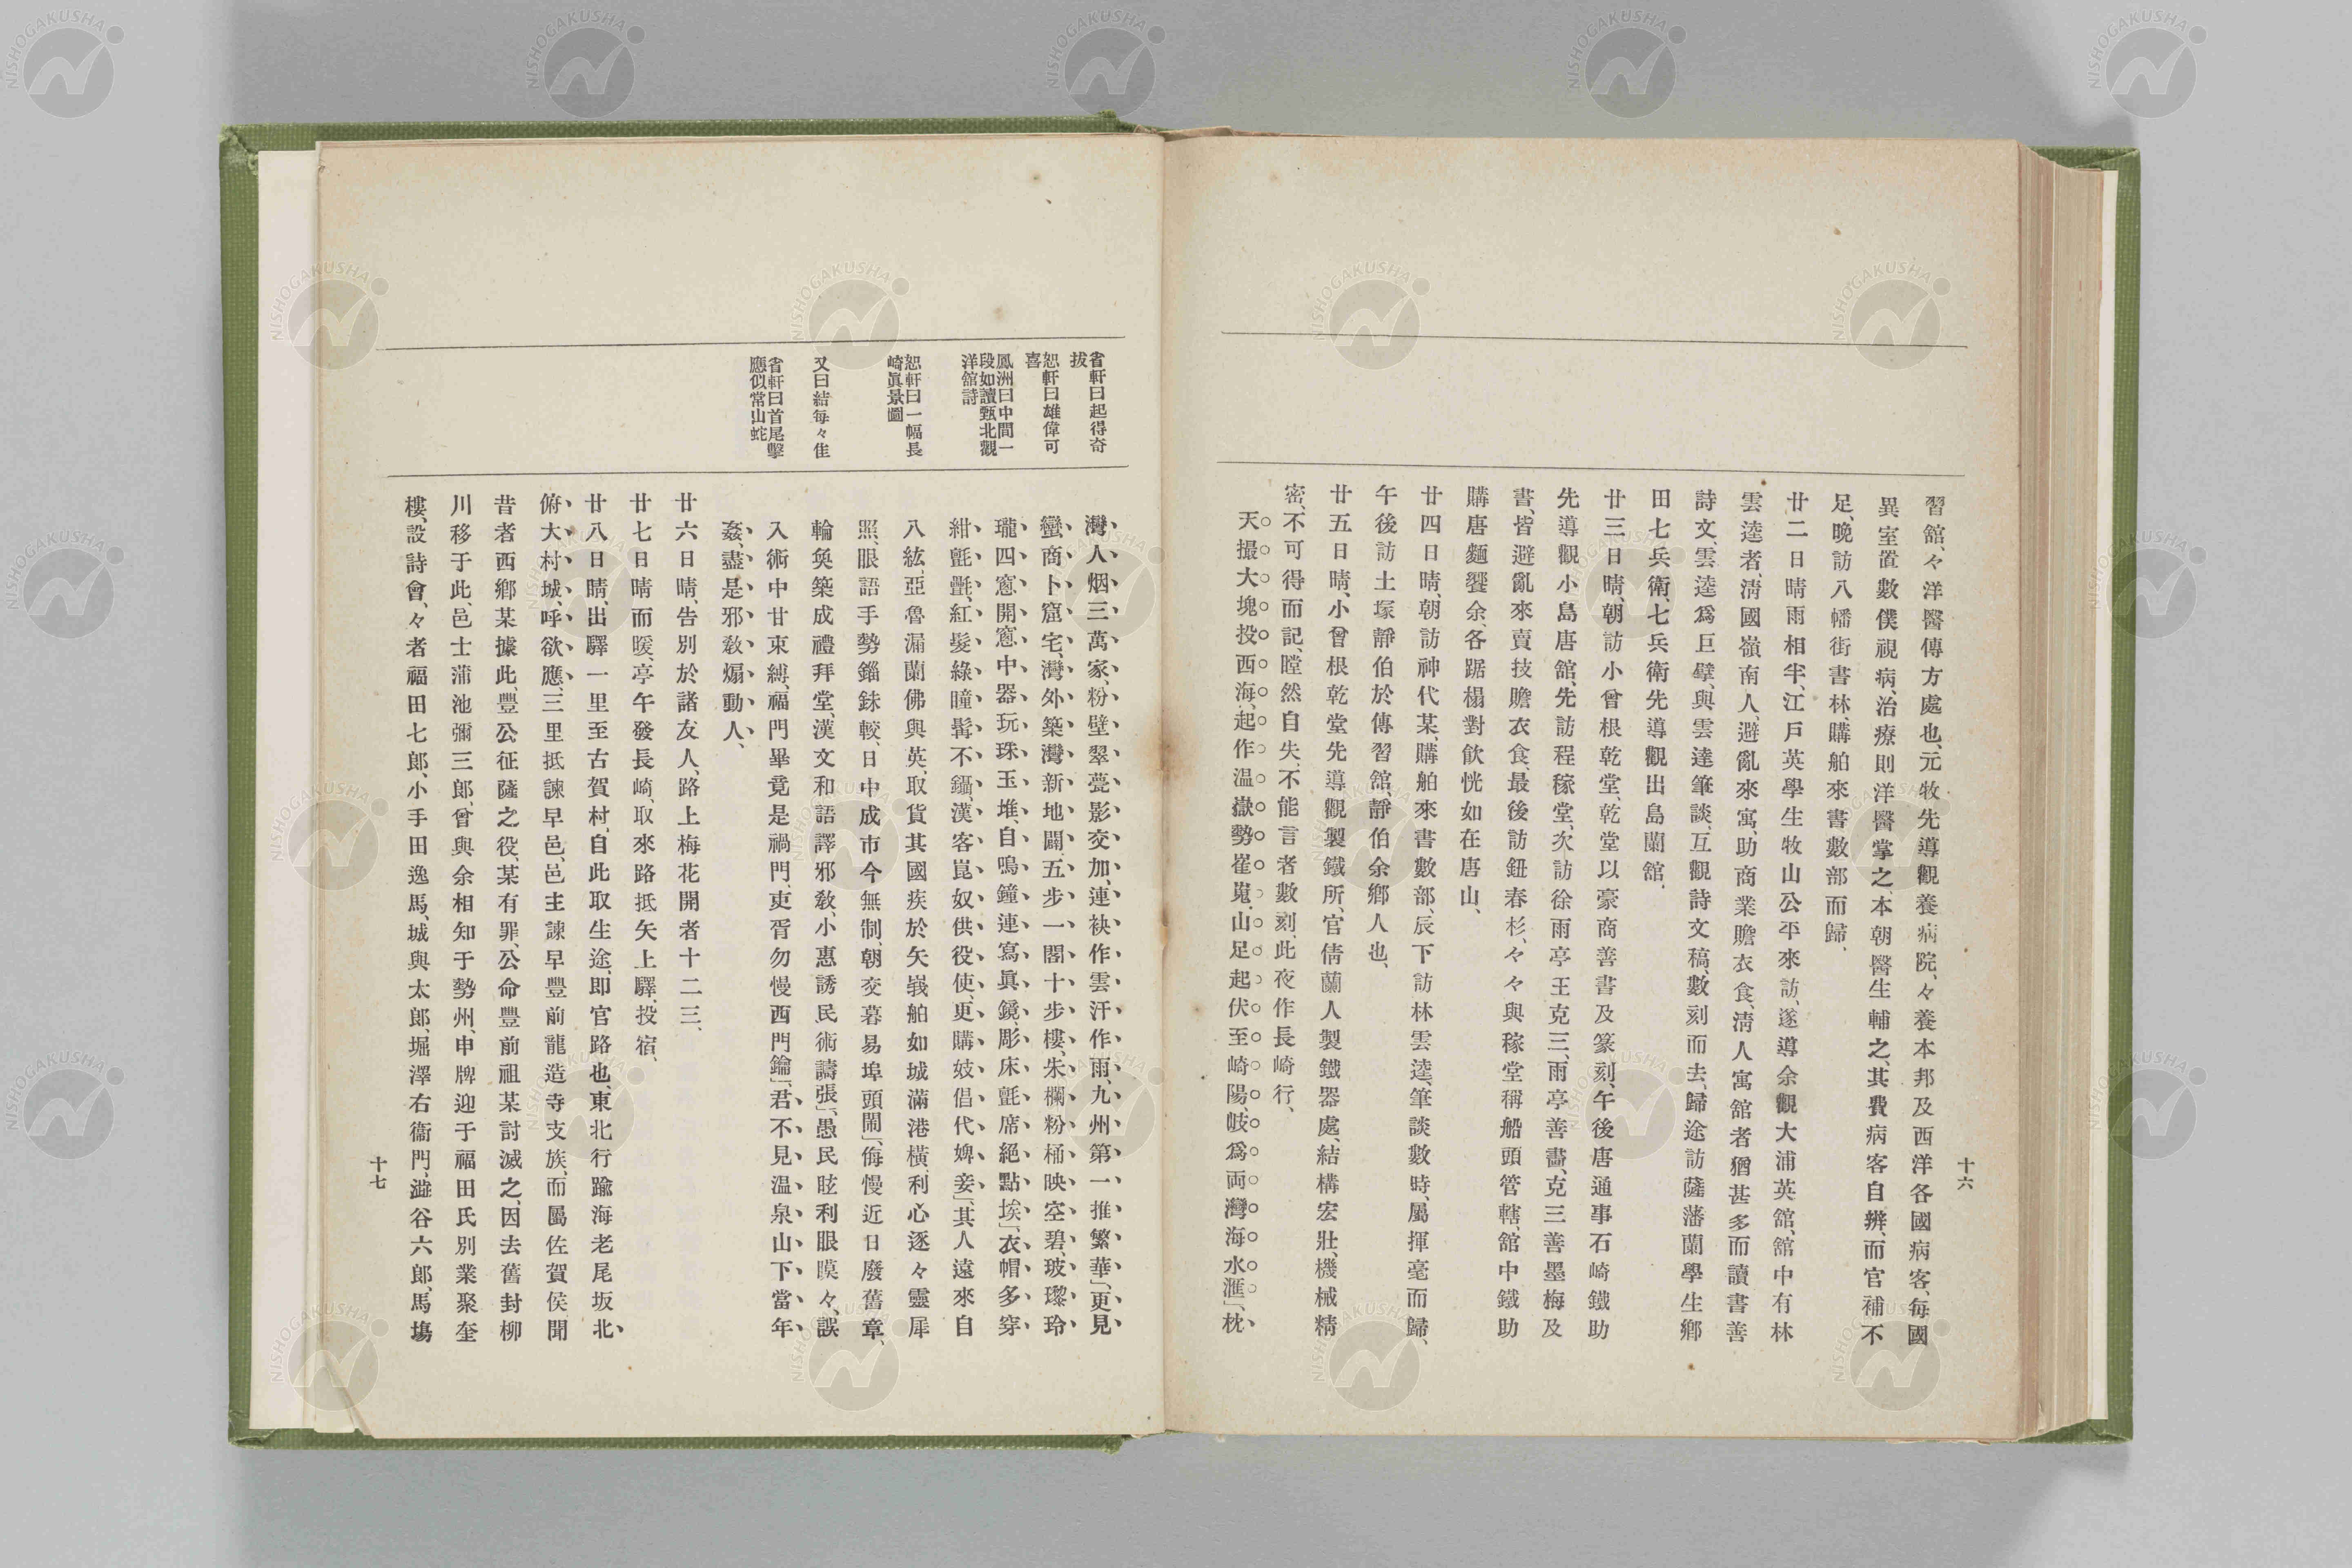 十六
習舘、々洋醫傳方處也、元牧先導觀養病院、々養本邦及西洋各國病客、毎國
異室置數僕視病、治療則洋醫掌之、本朝醫生輔之、其費病客自辨、而官補不
足、晩訪八幡街書林、購舶來書數部而歸、
廿二日晴雨相半、江戸英學生牧山公平來訪、遂導余觀大浦英舘、舘中有林
雲逵者、淸國嶺南人、避亂來寓、助商業贍衣食、淸人寓舘者猶甚多而讀書善
詩文、雲逵爲巨擘、與雲逵筆談、互觀詩文稿、數刻而去、歸途訪薩藩蘭學生鄕
田七兵衛、七兵衛先導觀出島蘭舘、
廿三日晴、朝訪小曾根乾堂、乾堂以豪商善書及篆刻、午後唐通事石崎鐵助
先導觀小島唐舘、先訪程稼堂、次訪徐雨亭王克三、雨亭善畫、克三善墨梅及
書、皆避亂來賣技贍衣食、最後訪鈕春杉、々々與稼堂稱船頭管轄、舘中鐵助
購唐麵饗余、各踞榻對飮恍如在唐山、
廿四日晴、朝訪神代某、購舶來書數部、辰下訪林雲逵、筆談數時、屬揮毫而歸、
午後訪土塚靜伯於傳習舘、靜伯余鄕人也、
廿五日晴、小曾根乾堂先導觀製鐵所、官倩蘭人製鐵器處、結構宏壯、機械精
密、不可得而記、瞠然自失、不能言者數刻、此夜作長崎行、
天撮大塊投西海、起作温嶽勢崔嵬、山足起伏至崎陽、岐爲両灣海水滙」、枕
省軒曰起得奇
拔
恕軒曰雄偉可
喜
鳳洲曰中間一
段如讀甄北觀
洋舘詩
恕軒曰一幅長
崎眞景圖
又曰結毎々佳
省軒曰首尾擊
應似常山蛇
灣人烟三萬家、粉壁翠甍影交加、連袂作雲汗作雨、九州第一推繁華」、更見
蠻商卜窟宅、灣外築灣新地闢、五步一閣十步樓、朱欄粉桶映空碧、玻瓈玲
瓏四窓開窓中器玩珠玉堆、自鳴鐘連寫眞鏡、彫床氈席絕點埃」、衣帽多穿
紺氈氍、紅髮綠瞳髯不鑷、漢客崑奴供役使、更購妓倡代婢妾」、其人遠來自
八紘、亞魯漏蘭佛與英、取貨其國疾於矢峩舶如城滿港橫、利心逐々靈犀
照、眼語手勢錙銖較、日中成市今無制、朝交暮易埠頭閙」、侮慢近日廢舊章、
輪奐築成禮拜堂、漢文和語譯邪敎、小惠誘民術譸張」、愚民眩利眼瞙々、誤
入術中甘束縛、福門畢竟是禍門、吏胥勿慢西門鑰」、君不見温泉山下當年
姦、盡是邪敎煽動人、
廿六日晴、告別於諸友人、路上梅花開者十二三、
廿七日晴而暖、亭午發長崎、取來路抵矢上驛、投宿、
廿八日晴、出驛一里至古賀村、自此取生途、即官路也、東北行踰海老尾坂北
俯大村城、呼欲應、三里抵諫早邑、邑主諫早豐前龍造寺支族、而屬佐賀侯聞
昔者西鄕某據此、豐公征薩之役、某有罪、公命豐前祖某討滅之、因去舊封柳
川移于此、邑士蒲池彌三郎、曾與余相知于勢州、申牌迎于福田氏別業聚奎
樓、設詩會、々者福田七郎、小手田逸馬、城與太郎、堀澤右衞門、澁谷六郎、馬塲
十七